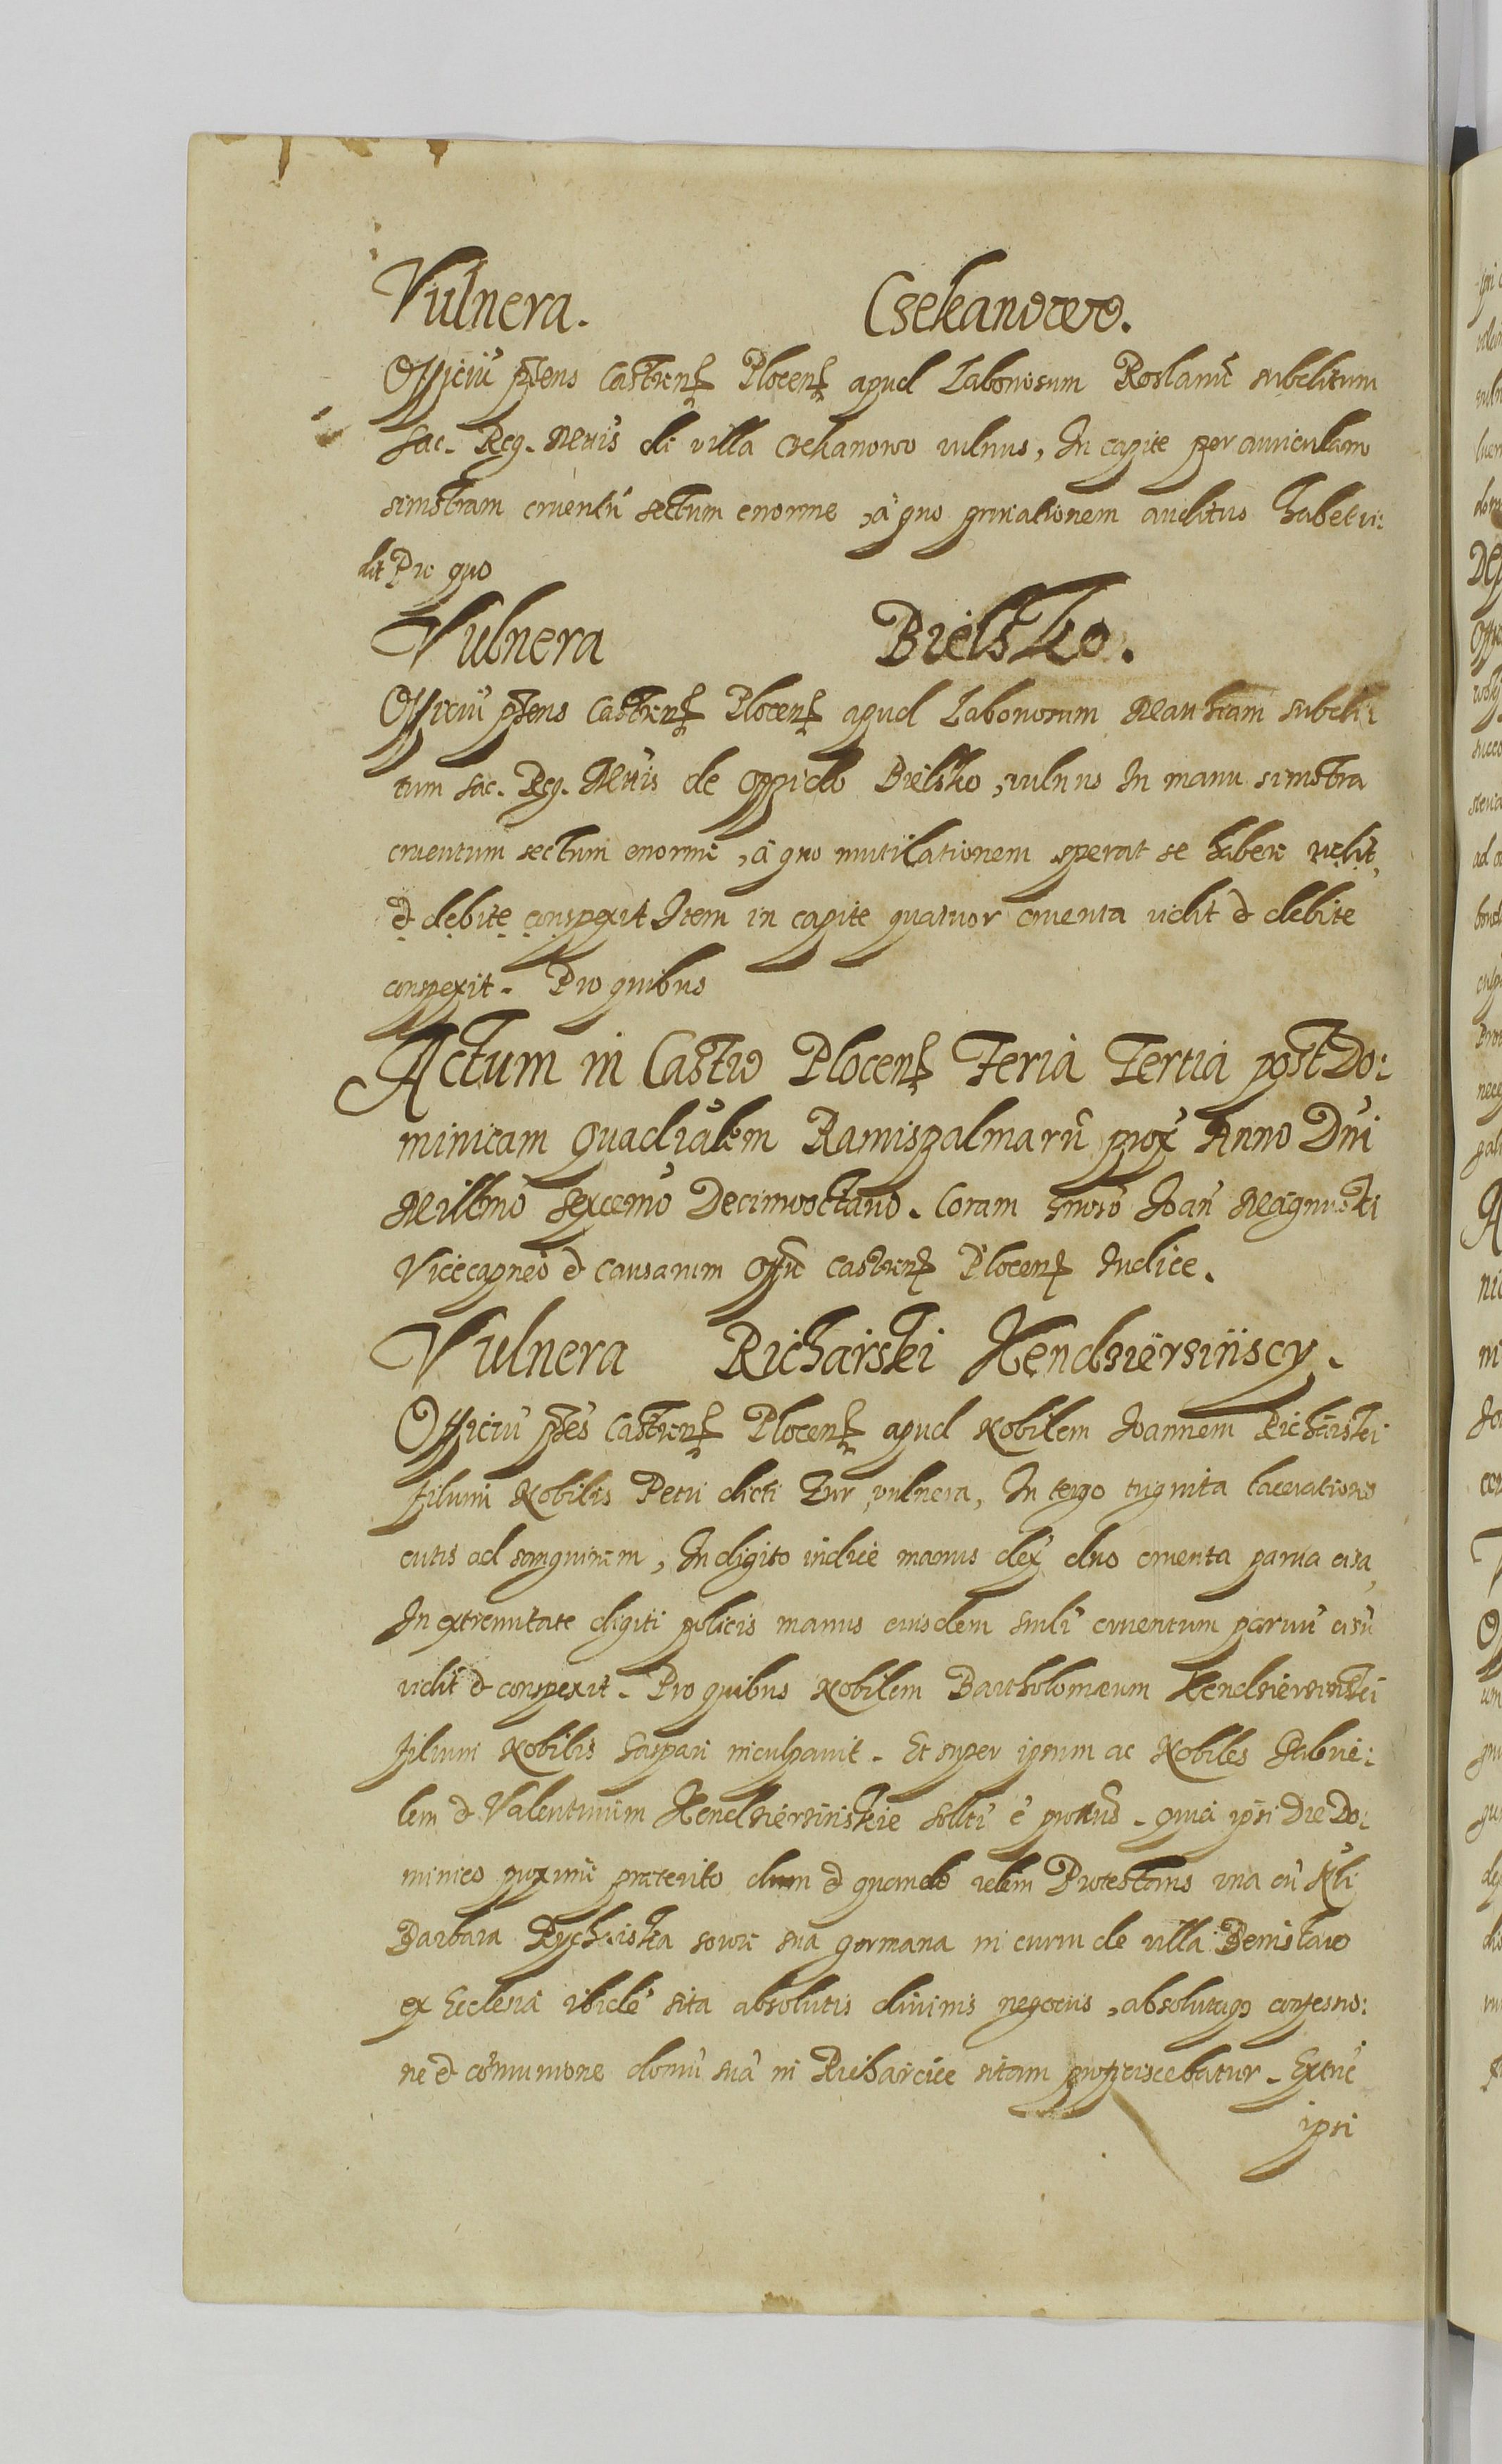 Vulnera. Czekanowo.
Officiũ p̃sens Castren̄ Plocen̄ apud Laboriosum Roslanũ subditum
Sac. Reg. Mttis de villa Czekanowo vulnus, In capite per auriculam
sinistram cruentũ sectum enorme, à quo privationem auditus habet vi:
dit Pro quo
Vulnera Bielsko.
Officiũ p̃sens Castren̄ Plocen̄ apud Laboriosum Mathiam subdi:
tum Sac. Reg. Mttis de oppido Bielsko, vulnus In manu sinistra
cruentum sectum enorme, à quo mutilationem sperat se habere vidit
& debite conspexit Item in capite quatuor cruenta vidit & debite
conspexit. Pro quibus
Actum in Castro Plocen̄ Feria Tertia post Do:
minicam Quadrãlem Ramispalmarũ prox̃ Anno Dñi
Millmo Sexcemo Decimooctavo. Coram Gnoso Joañ Magnuski
Vicecapneo & Causarum Offi Castren̄ Plocen̄ Iudice.
Vulnera Richarski Kendzierzińscy.
Officiũ p̃ñs Castren̄ Plocen̄ apud Nobilem Joannem Richarski
filium Nobilis Petri dicti Zur vulnera, In tergo triginta lacerationes
cutis ad sanguinem, In digito indice manus dex̃ duo cruenta parva cisa,
In extremitate digiti policis manus eiusdem simli cruentum parvũ cisũ
vidit & conspexit. Pro quibus Nobilem Bartholomæum Kendzierzinski
filium Nobilis Gaspari inculpavit. Et super ipsum ac Nobiles Gabrie:
lem & Valentinum Kendzierzinskie sollti ẽ protus. Quia ipsi Die Do:
minico proxime præterito dum & quando idem Protestans una cũ Nli
Barbara Rycharska sorore sua germana in curru de villa Peniskowo
ex Ecclesia ibidẽ sita absolutis divinis negociis, absolutaq3 confessio:
ne & cõmunione domũ suã in Richarcice sitam proficiscebatur. Extũc
ipsi